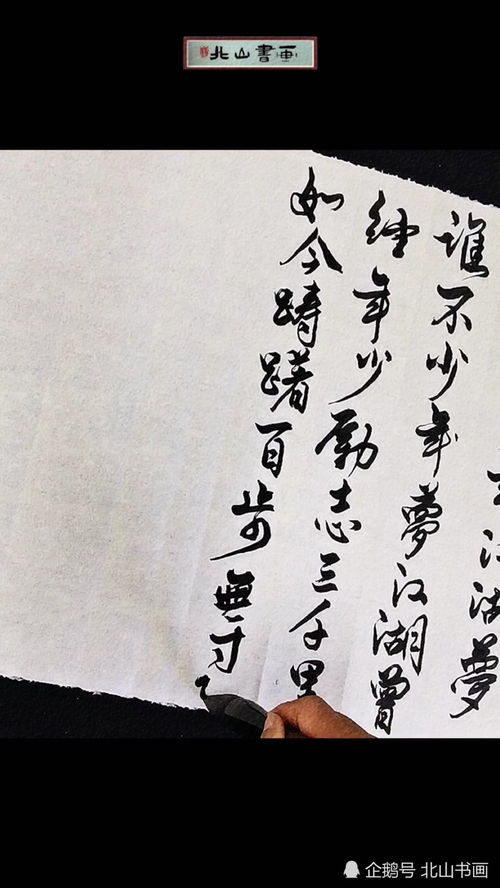 北山書画
江湖夢
誰不少年夢江湖曾
經年少励志三千里
如今踌躇百步無寸
企鹅号 北山书画